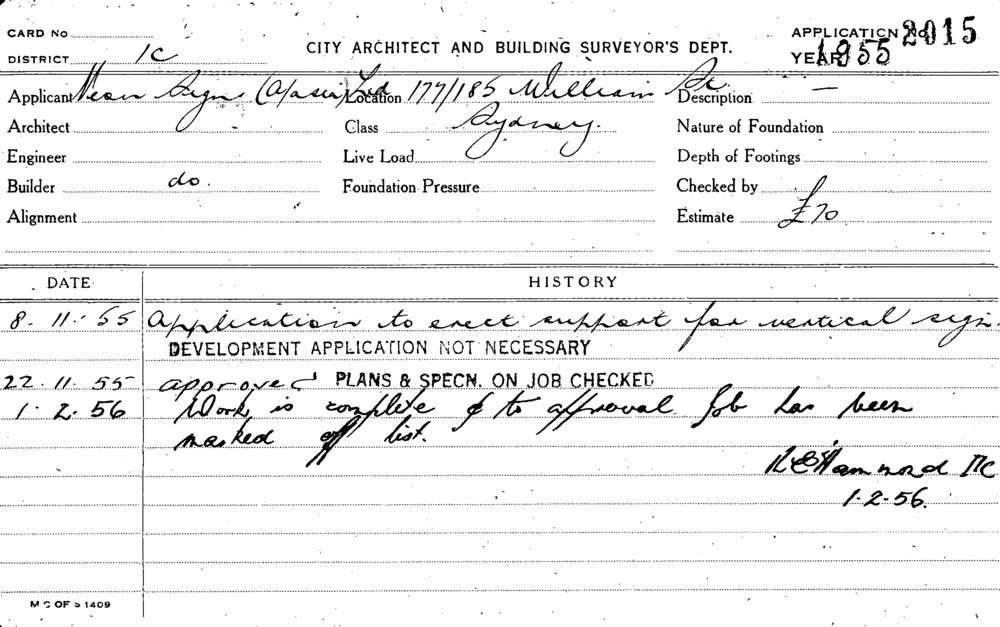 CARD No
DISTRICT 1C
CITY ARCHITECT AND BUILDING SURVEYOR'S DEPT.
APPLICATION No 2015
YEAR 1955
Applicant Neon Signs (A/asia) Ltd Location 177/185 William St. Description —
Architect Class Sydney. Nature of Foundation
Engineer Live Load Depth of Footings
Builder do. Foundation Pressure Checked by
Alignment Estimate £70
DATE HISTORY
8. 11. 55 Application to erect support for vertical sign.
DEVELOPMENT APPLICATION NOT NECESSARY
22. 11. 55 approved PLANS & SPECN. ON JOB CHECKED
1. 2. 56 Work is complete & to approval Job has been
marked off list.
Hammond
1.2.56.
M C OF S 1409